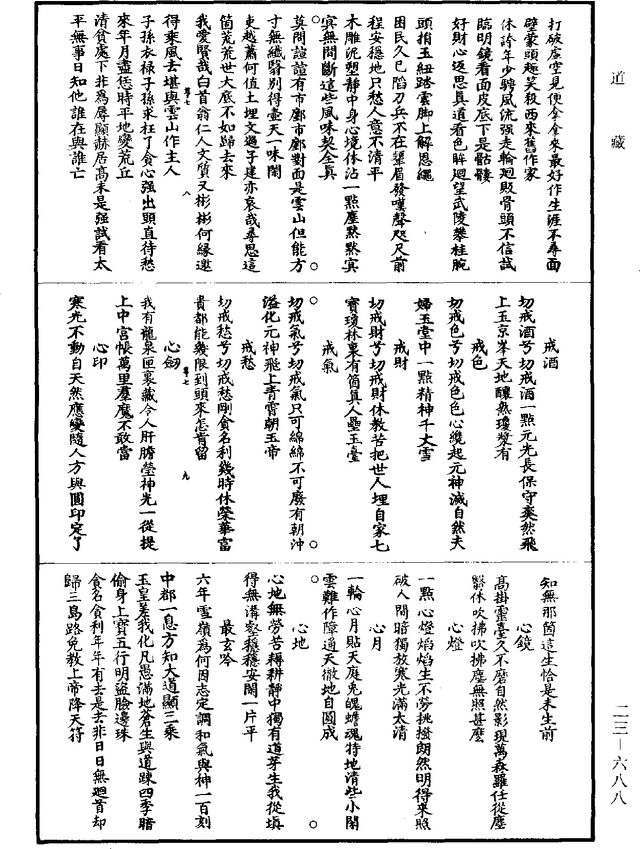 道藏
打破虛空見便拿拿來最好作生涯不尋面
壁蒙頭趣笑殺西來舊作家
休誇年少騁風流強走輪迴販骨頭不信試
臨明鏡看面皮底下是骷髏
好財心返思真道看色眸迴望武陵攀桂腕
頭捎玉紐踏雲脚上解恩繩
困民久已陷刀兵不在顰眉發嘆聲咫尺前
程安穩地只愁人意不清平
木雕泥塑靜中身心境体沾一點塵默默冥
冥無間斷這些風味契全真
莫問諠諠有市鄽市鄽對面是雲山但能方
寸無纖翳別得壺天一味閑
吏越蕭何值土埋文過子建亦哀哉尋思這
箇荒荒世大底不如歸去來
我愛賢哉白首翁仁人文質又彬彬何緣邀
得乘風去堪與雲山作主人
子孫衣祿子孫求枉了貪心強出頭直待愁
來年月盡恁時平地變荒丘
清貧處下非爲辱顯赫居高未是強試看太
平無事日知他誰在與誰亡
戒酒
切戒酒兮切戒酒一點元光長保守奏然飛
上玉京峯天地釀熟瓊漿有
戒色
切戒色兮切戒色色心纔起元神滅自然夫
婦玉堂中一點精神千丈雪
戒財
切戒財兮切戒財休教苦把世人埋自家七
寶瓊林裏有箇真人壘玉臺
戒氣
切戒氣兮切戒氣只可綿綿不可廢有朝沖
溢化元神飛上青霄朝玉帝
戒愁
切戒愁兮切戒愁剛貪名利幾時休榮華富
貴都能幾限到頭來怎肯留
心劒
我有龍泉匣裏藏令人肝膽瑩神光一從提
上中宮帳萬里羣魔不敢當
心印
寒光不動自天然應變隨人方與圓印定了
知無那箇這生恰是未生前
心鏡
高掛靈臺久不磨自然影現萬森羅任從塵
翳休吹拂吹拂塵無照甚麼
心燈
一點心燈焰焰生不勞挑撥朗然明得來照
破人間暗獨放寒光滿太清
心月
一輪心月貼天庭兎魄蟾魂特地清些小閑
雲難作障通天徹地自圓成
心地
心地無勞苦耨耕靜中獨有道芽生我從塡
得無溝壑穩穩安閑一片平
最玄吟
六年雪嶺爲何因志定調和氣與神一百刻
中都一息方知大道顯三乘
玉皇差我化凡愚滿地蒼生與道踈四季暗
偷身上寶五行明盜臉邊珠
貪名貪利年年有去是去非日日無迴首却
歸三島路免教上帝降天符
二三—六八八